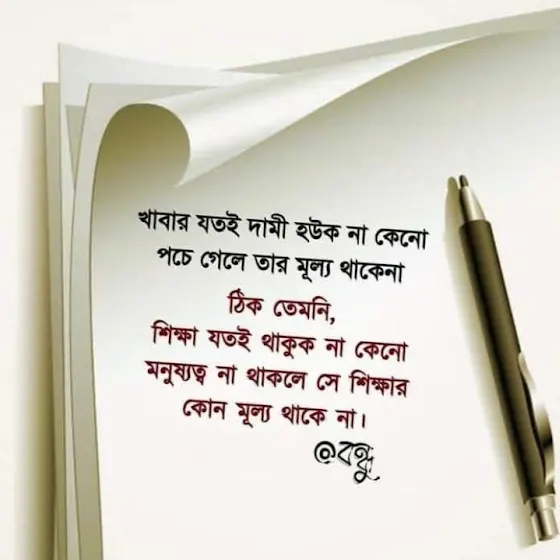 খাবার যতই দামী হউক না কেনো
পচে গেলে তার মূল্য থাকেনা
ঠিক তেমনি,
শিক্ষা যতই থাকুক না কেনো
মনুষ্যত্ব না থাকলে সে শিক্ষার
কোন মূল্য থাকে না।
@বন্ধু